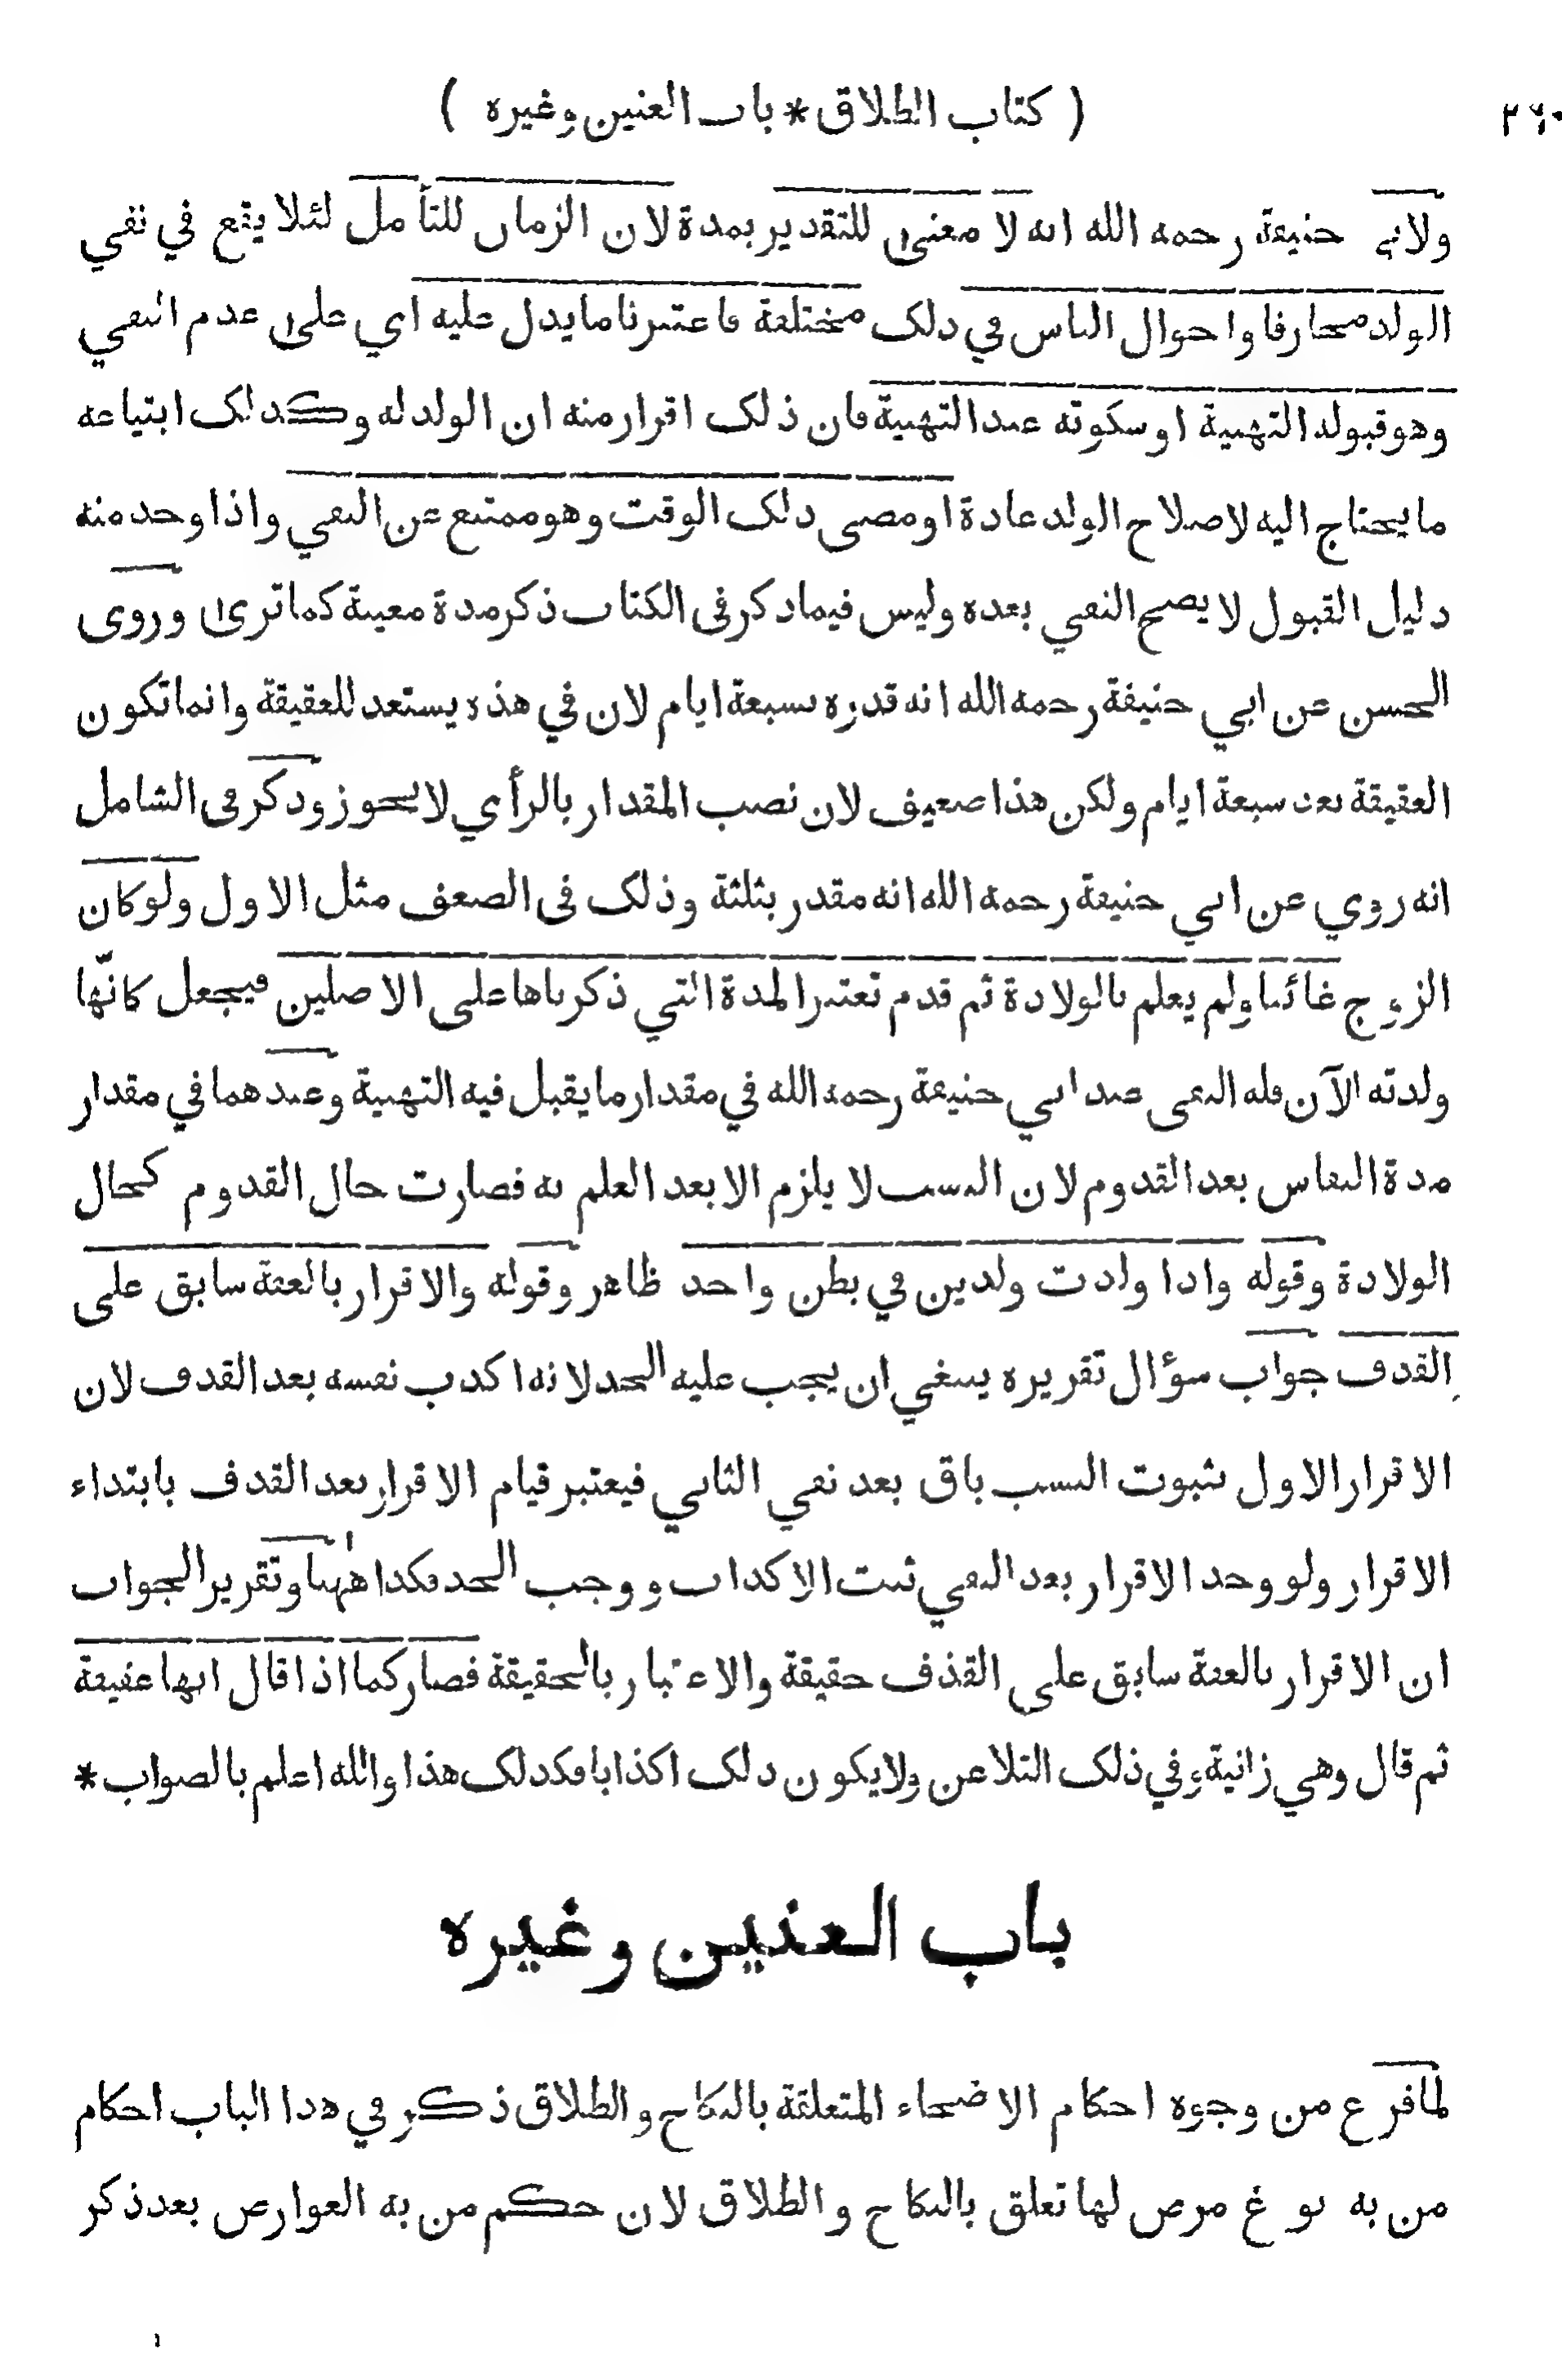 ( كتاب الطلاق * باب العنين وغيره ) ٢٦٠
ولابي حنيفة رحمه الله انه لا معنى للتقدير بمدة لان الزمان للتأمل لئلا يقع في نفي
الولد مجازفا واحوال الناس في ذلك مختلفة فاعتبرنا ما يدل عليه اي على عدم النفي
وهو قبوله التهنية او سكوته عند التهنية فان ذلك اقرار منه ان الولد له وكذلك ابتياعه
ما يحتاج اليه لاصلاح الولد عادة او مضى ذلك الوقت وهو ممتنع عن النفي واذا وجد منه
دليل القبول لا يصح النفي بعده وليس فيما ذكر في الكتاب ذكر مدة معينة كما ترى وروى
الحسن عن ابي حنيفة رحمه الله انه قدره بسبعة ايام لان في هذه يستعد للعقيقة وانما تكون
العقيقة بعد سبعة ايام ولكن هذا ضعيف لان نصب المقدار بالرأي لا يجوز وذكر في الشامل
انه روي عن ابي حنيفة رحمه الله انه مقدر بثلثة وذلك في الضعف مثل الاول ولو كان
الزوج غائبا ولم يعلم بالولادة ثم قدم تعتبر المدة التي ذكرناها على الاصلين فيجعل كانّها
ولدته الآن فله النفي عند ابي حنيفة رحمه الله في مقدار ما يقبل فيه التهنية وعندهما في مقدار
مدة النفاس بعد القدوم لان النسب لا يلزم الا بعد العلم به فصارت حال القدوم كحال
الولادة وقوله واذا ولدت ولدين في بطن واحد ظاهر وقوله والاقرار بالعفة سابق على
القذف جواب سؤال تقريره ينبغي ان يجب عليه الحد لانه اكذب نفسه بعد القذف لان
الاقرار الاول بثبوت النسب باق بعد نفي الثاني فيعتبر قيام الاقرار بعد القذف بابتداء
الاقرار ولو وجد الاقرار بعد النفي ثبت الاكذاب ووجب الحد فكذا ههنا وتقرير الجواب
ان الاقرار بالعفة سابق على القذف حقيقة والاعتبار بالحقيقة فصار كما اذا قال انها عفيفة
ثم قال وهي زانية وفي ذلك التلاعن ولا يكون ذلك اكذابا فكذلك هذا والله اعلم بالصواب *
باب العنين وغيره
لما فرغ من وجوه احكام الاصحاء المتعلقة بالنكاح والطلاق ذكر في هذا الباب احكام
من به نوع مرض لها تعلق بالنكاح والطلاق لان حكم من به العوارض بعد ذكر